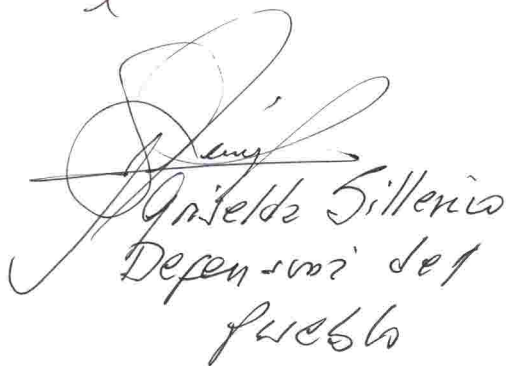 Griselda Sillerico
Defensoria del
Pueblo